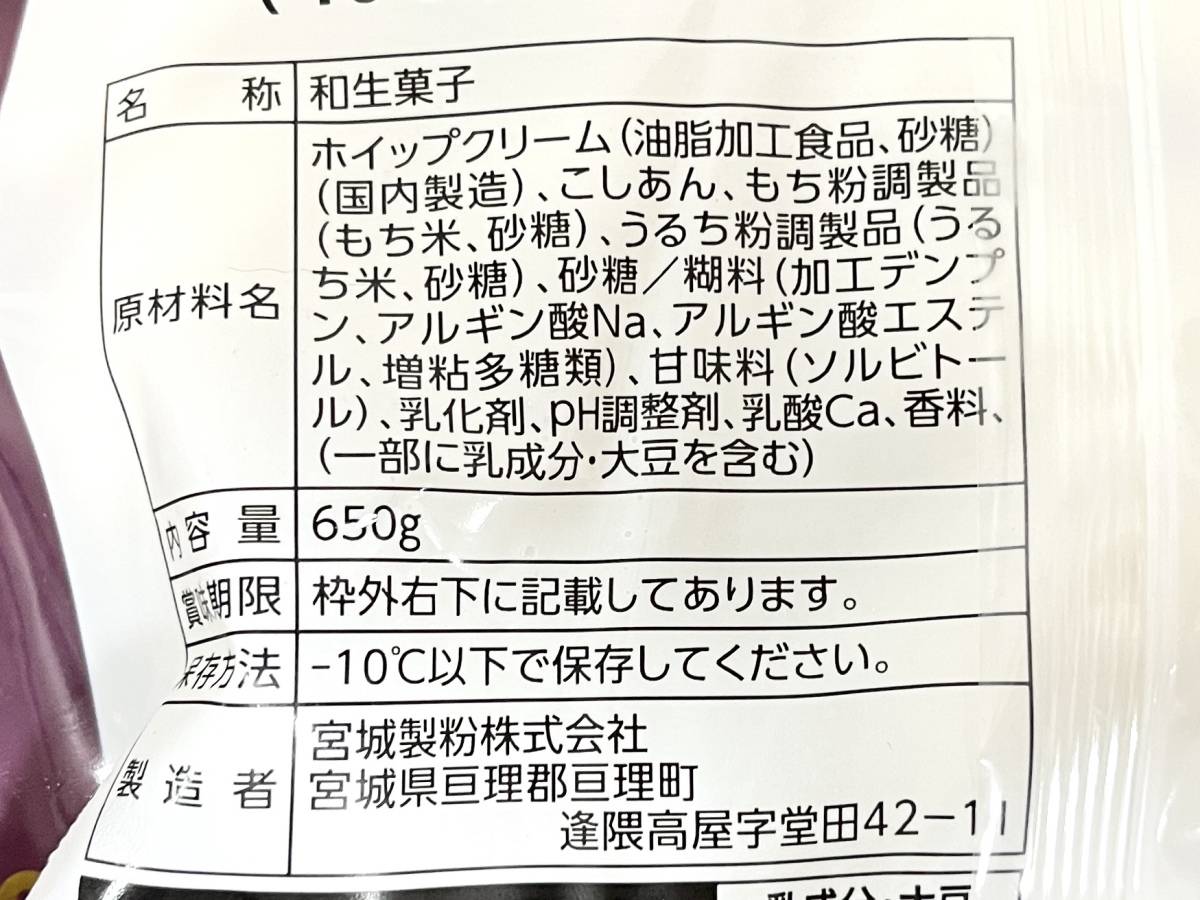 名称 和生菓子
原材料名 ホイップクリーム(油脂加工食品、砂糖)
(国内製造)、こしあん、もち粉調製品
(もち米、砂糖)、うるち粉調製品(うる
ち米、砂糖)、砂糖/糊料(加工デンプ
ン、アルギン酸Na、アルギン酸エステ
ル、増粘多糖類)、甘味料(ソルビトー
ル)、乳化剤、pH調整剤、乳酸Ca、香料、
(一部に乳成分・大豆を含む)
内容量 650g
賞味期限 枠外右下に記載してあります。
保存方法 −10℃以下で保存してください。
製造者 宮城製粉株式会社
宮城県亘理郡亘理町
逢隈高屋字堂田42−11
乳成分・大豆